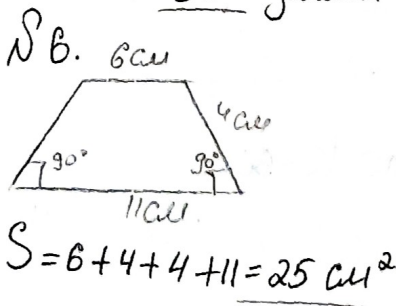 №6.
6см
4см
90° 90°
11см
S=6+4+4+11=25 см²